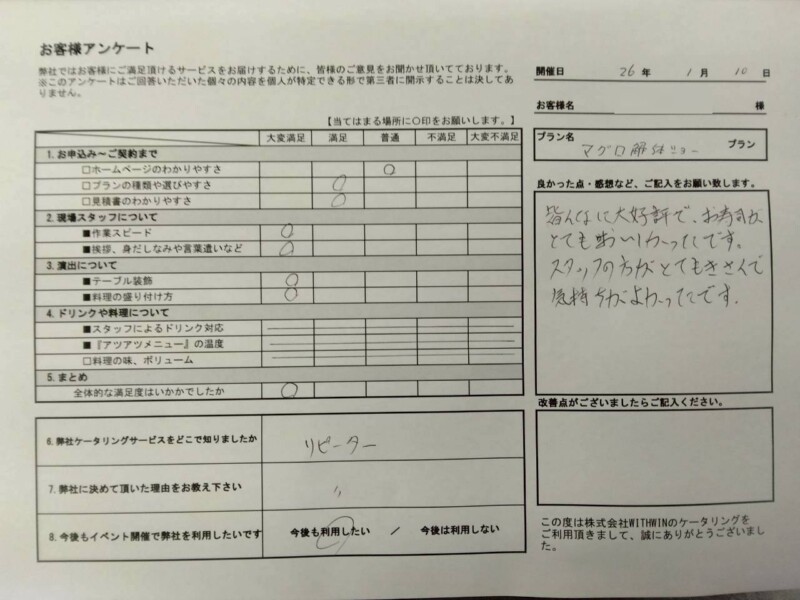 お客様アンケート
弊社ではお客様にご満足頂けるサービスをお届けするために、皆様のご意見をお聞かせ頂いてております。
※このアンケートはご回答いただいた個々の内容を個人が特定できる形で第三者に開示することは決してあ
りません。
開催日 26 年 1 月 10 日
お客様名 様
【当てはまる場所に○印をお願いします。】
大変満足 満足 普通 不満足 大変不満足
プラン名
マグロ解体ショー プラン
1.お申込み～ご契約まで
□ホームページのわかりやすさ ○
□プランの種類や選びやすさ ○
□見積書のわかりやすさ ○
2.現場スタッフについて
■作業スピード ○
■挨拶、身だしなみや言葉遣いなど ○
3.演出について
■テーブル装飾 ○
■料理の盛り付け方 ○
4.ドリンクや料理について
■スタッフによるドリンク対応
■『アツアツメニュー』の温度
□料理の味、ボリューム
5.まとめ
全体的な満足度はいかかでしたか ○
良かった点・感想など、ご記入をお願い致します。
皆んなに大好評で、お寿司が
とてもおいしかったです。
スタッフの方がとてもきさくで
気持ちがよかったです。
改善点がございましたらご記入ください。
6.弊社ケータリングサービスをどこで知りましたか リピーター
7.弊社に決めて頂いた理由をお教え下さい 〃
8.今後もイベント開催で弊社を利用したいです 今後も利用したい ／ 今後は利用しない
この度は株式会社WITHWINのケータリングを
ご利用頂きまして、誠にありがとうございまし
た。